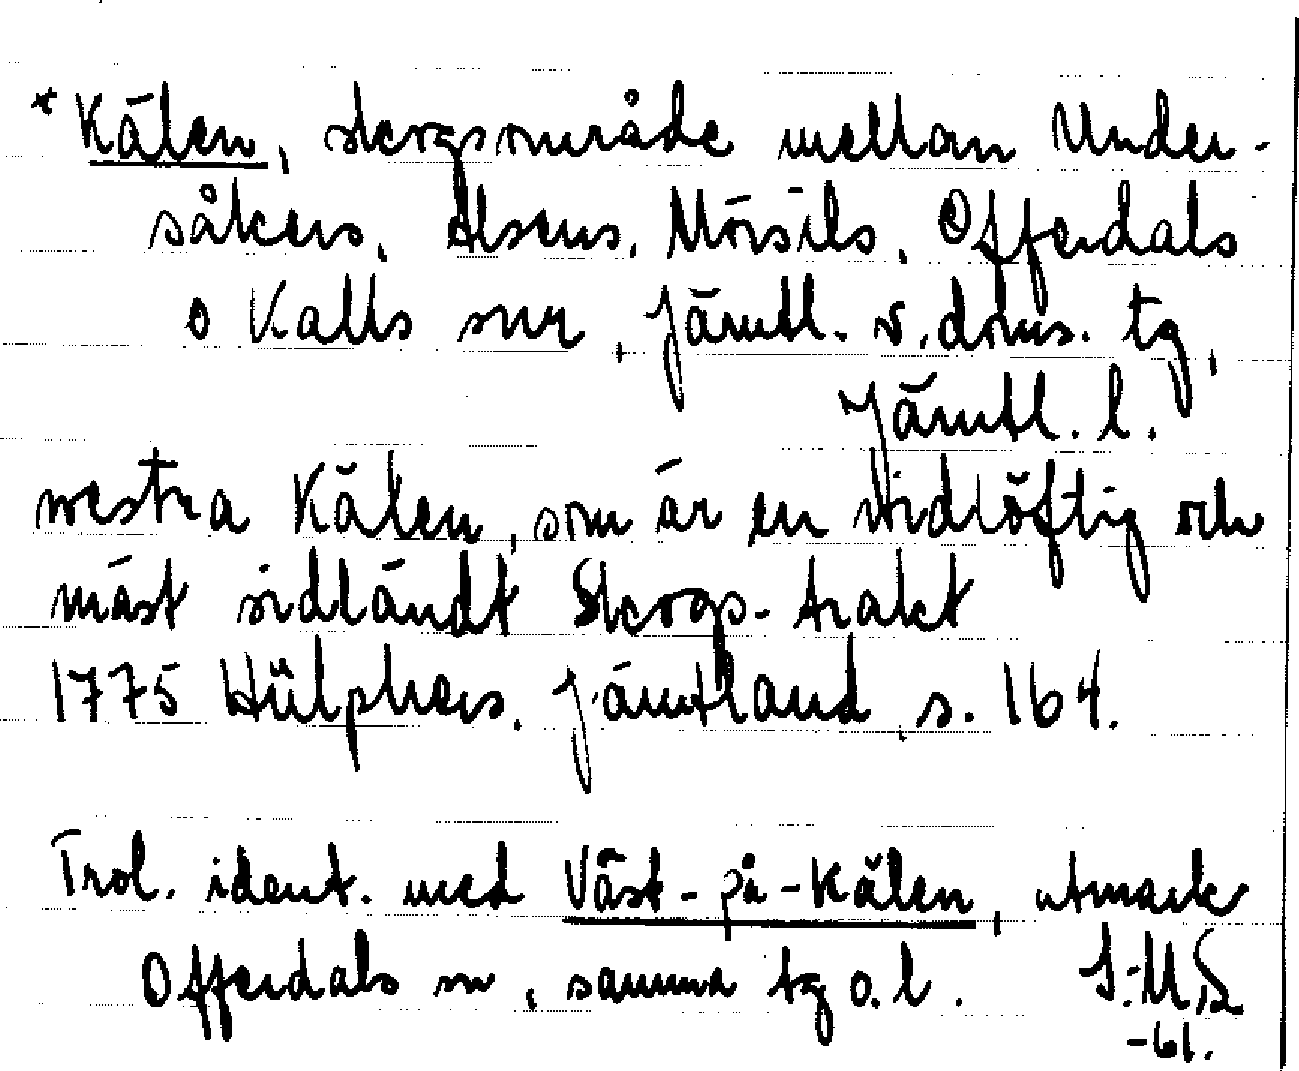 *Kälen, skogsområde mellan Under-
såkers, Alsens, Mörsils, Offerdals
o Kalls snr, Jämtl. v. doms. tg,
Jämtl. l.
westra Kälen, som är en vidlöftig och
mäst sidländt Skogs-trakt
1775 Hülphers. Jämtland, s. 164.
Trol. ident. med Väst-på-Kälen, utmark
Offerdals sn, samma tg o. l.
-61.